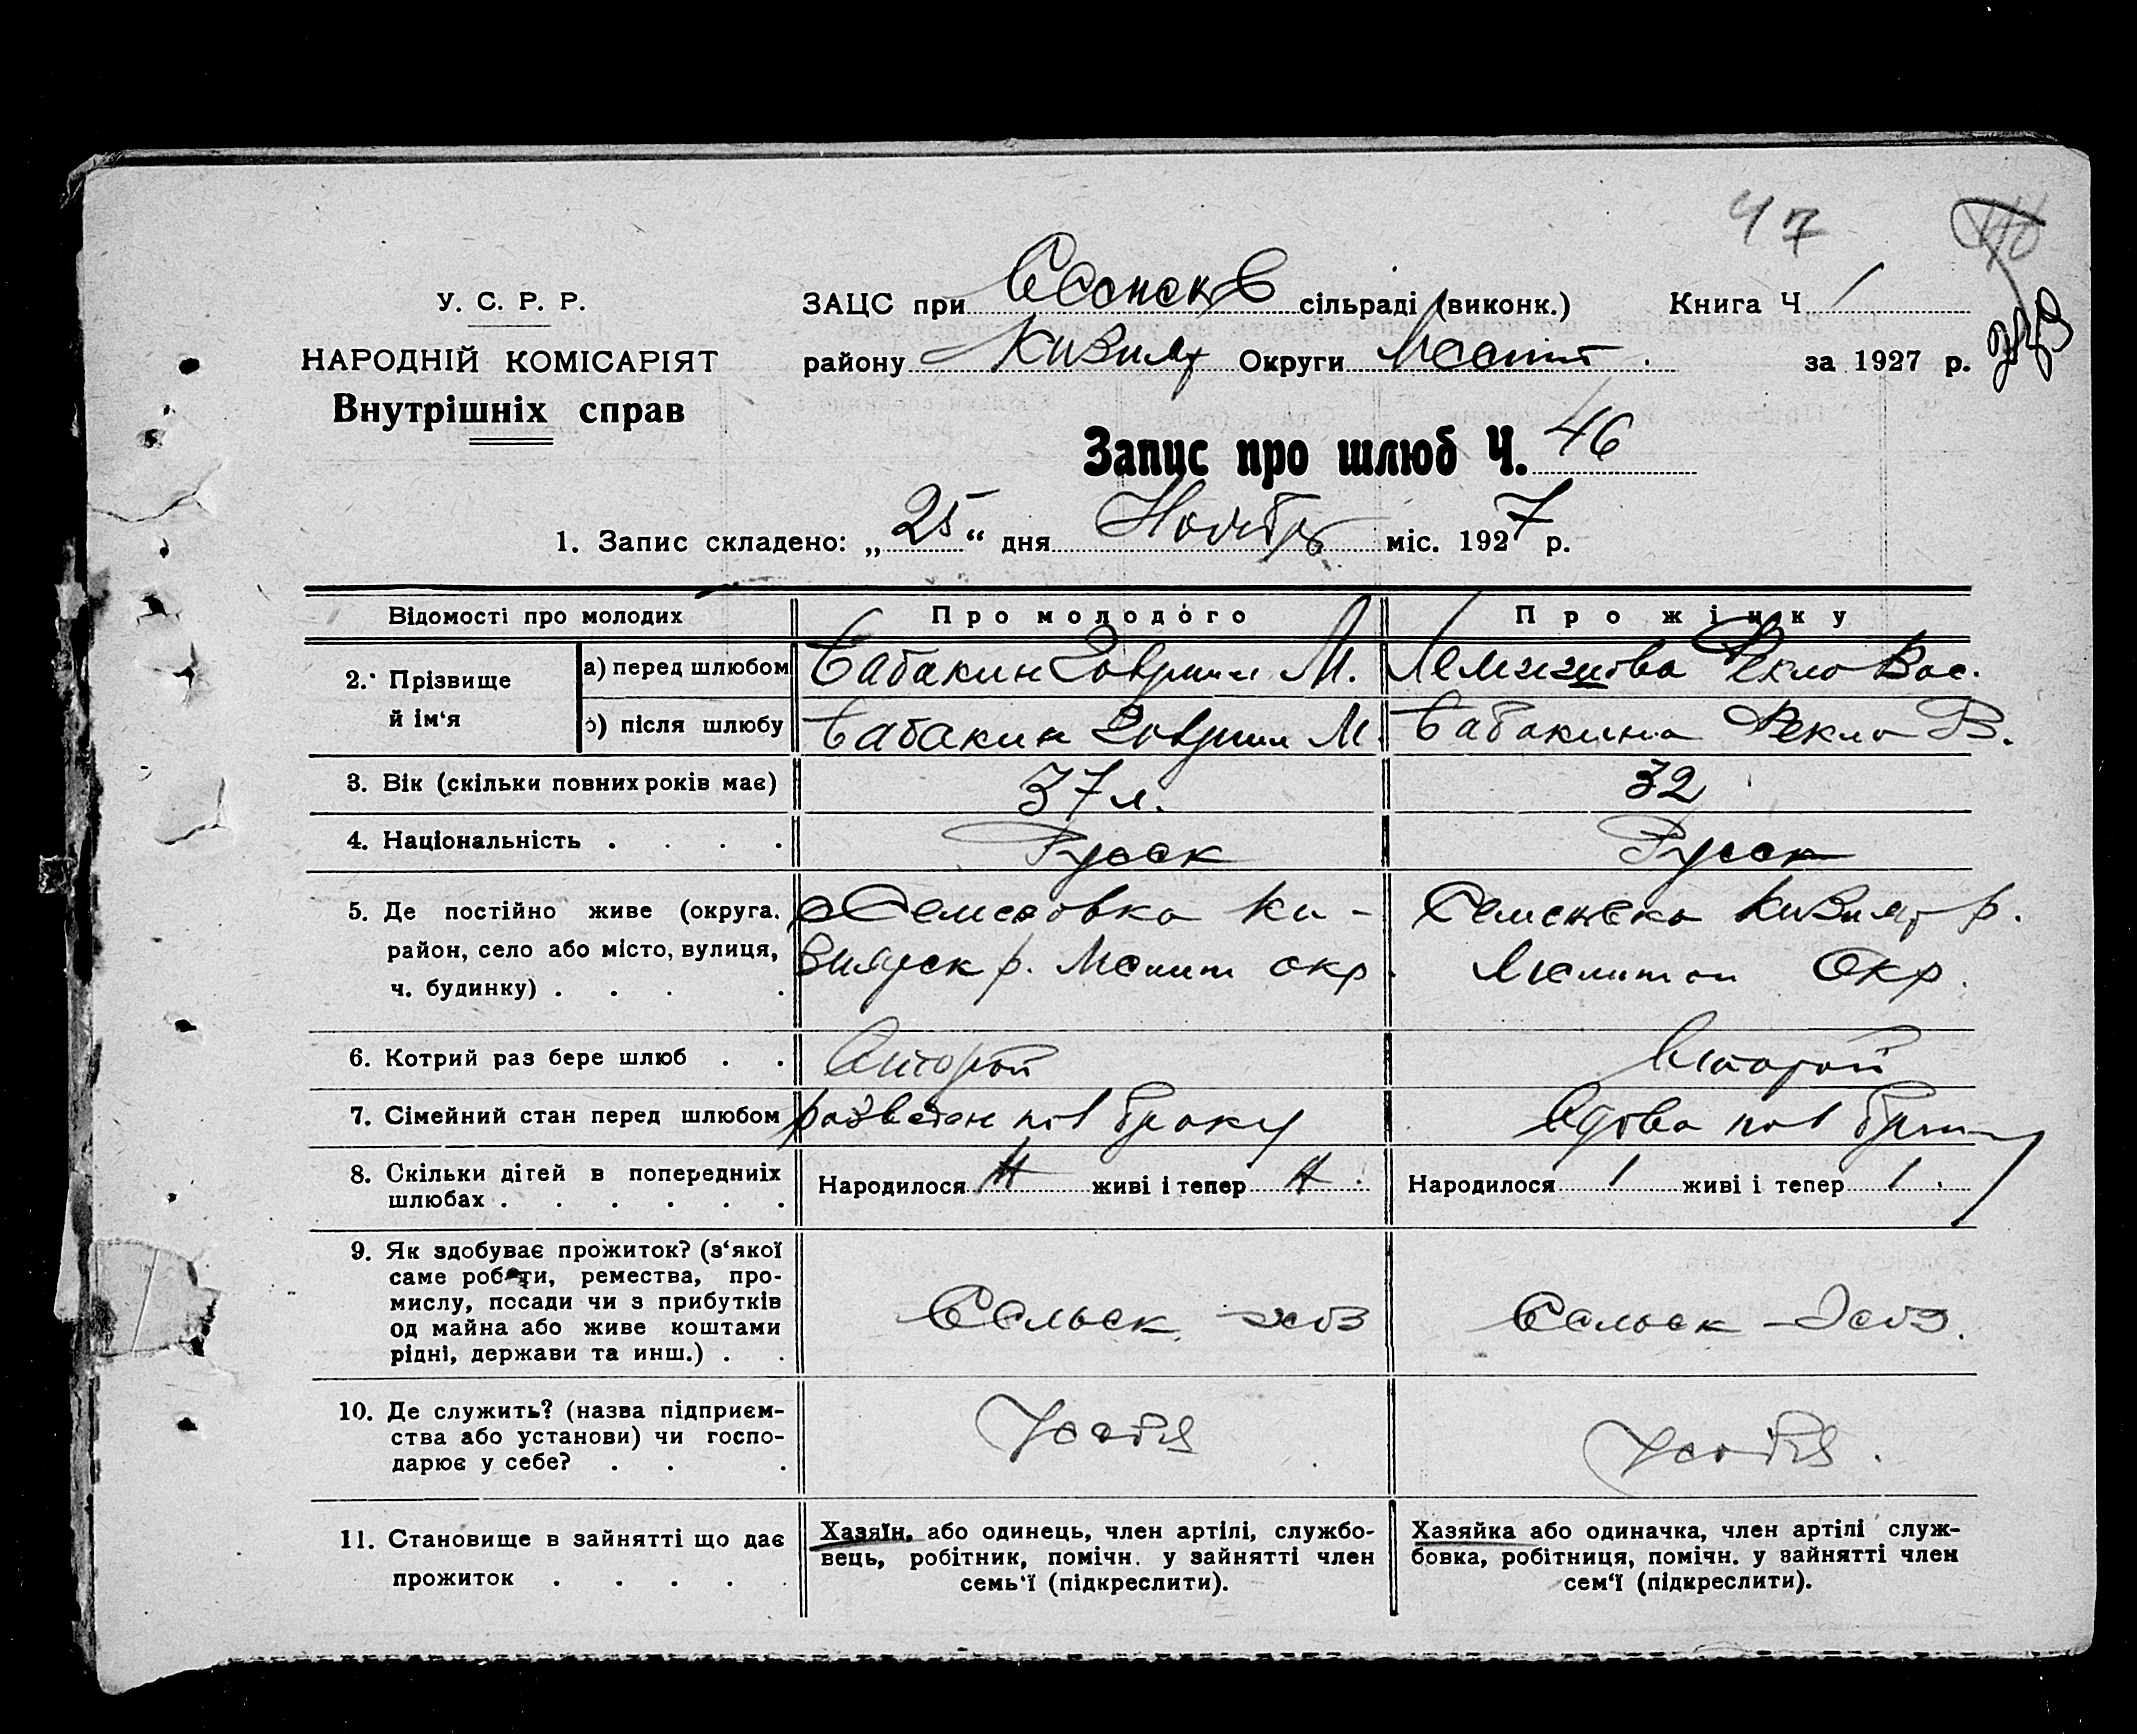 47
У. С. Р. Р.
НАРОДНІЙ КОМІСАРІЯТ
Внутрішніх справ
ЗАЦС при сільраді (виконк.) Книга Ч 1
району Округи за 1927 р.
Запис про шлюб Ч. 46
1. Запис складено: „25“ дня Ноября міс. 1927 р.
Відомості про молодих
Про молодого
Про жінку
2. Прізвище й ім‘я
а) перед шлюбом
Бабакин М.
Фекла Вас.
б) після шлюбу
Бабакин М.
Бабакина Фекла В.
3. Вік (скільки повних років має)
37 л.
32
4. Національність . . . .
Русск
Русск
5. Де постійно живе (округа,
район, село або місто, вулиця,
ч. будинку) . . . .
Ки-
р. Мелит окр.
р.
Окр.
6. Котрий раз бере шлюб . .
Второй
Второй
7. Сімейний стан перед шлюбом
разведен браку
Вдова
8. Скільки дітей в попередниіх
шлюбах . . . . . .
Народилося живі і тепер
Народилося 1 живі і тепер 1.
9. Як здобуває прожиток? (з‘якої
саме роботи, ремества, про-
мислу, посади чи з прибутків
од майна або живе коштами
рідні, держави та инш.) . .
Сельск. хоз
Сельск хоз.
10. Де служить? (назва підприєм-
ства або установи) чи госпо-
дарює у себе? . . .
У себя
У себя.
11. Становище в зайнятті що дає
прожиток . . . . .
Хазяїн, або одинець, член артілі, службо-
вець, робітник, помічн. у зайнятті член
семь‘ї (підкреслити).
Хазяйка або одиначка, член артілі служ-
бовка, робітниця, помічн. у зайнятті член
сем‘ї (підкреслити).